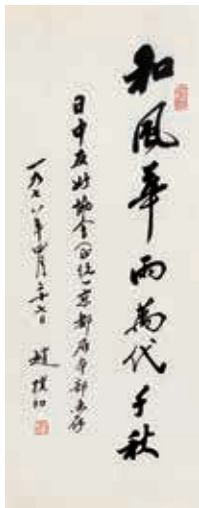 和風華雨萬代千秋
日中友好协会(正统)京都府本部惠存
一九七八年四月二十六日 趙樸初